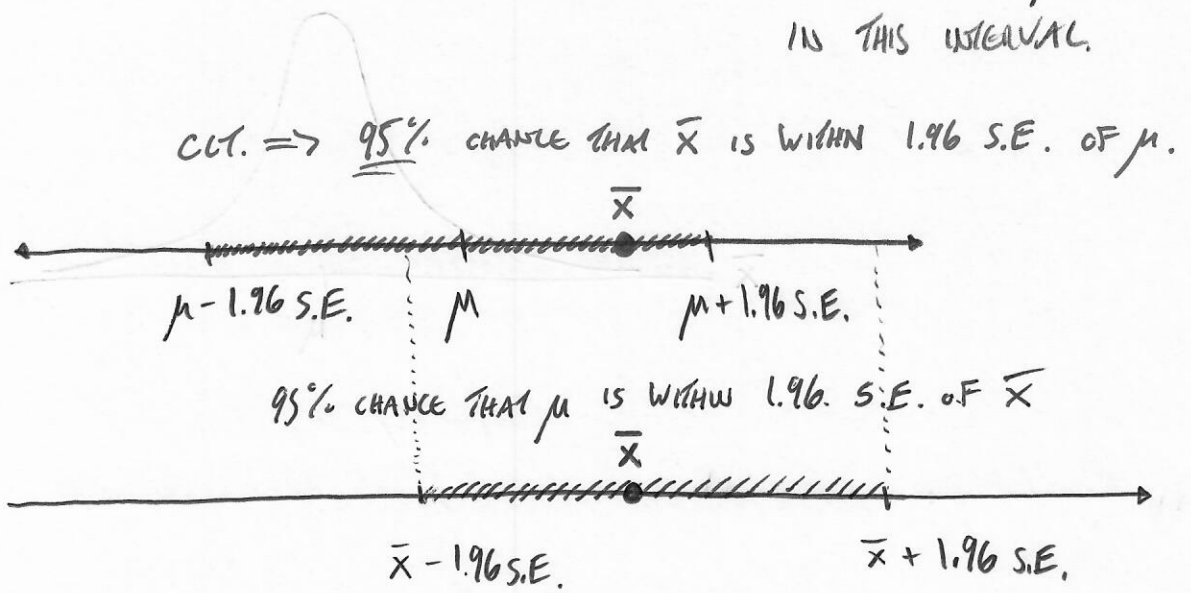 IN THIS INTERVAL.
CLT. => 95% CHANCE THAT x̄ IS WITHIN 1.96 S.E. OF μ.
x̄
μ - 1.96 S.E. μ μ + 1.96 S.E.
95% CHANCE THAT μ IS WITHIN 1.96. S.E. OF x̄
x̄
x̄ - 1.96 S.E. x̄ + 1.96 S.E.